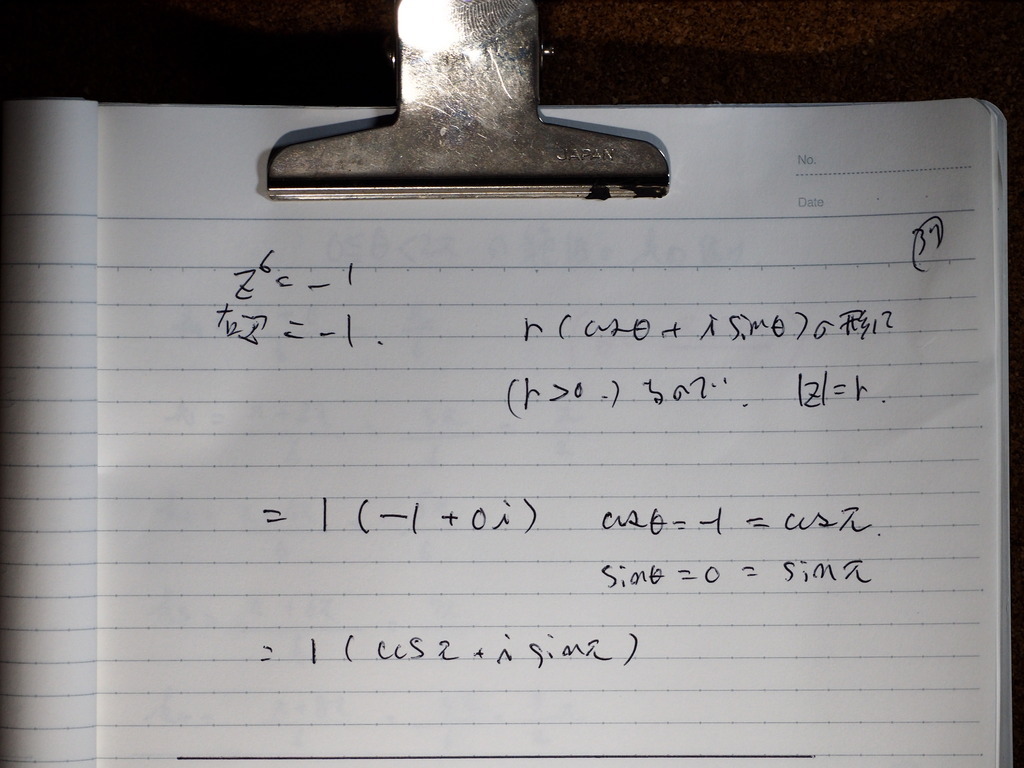 JAPAN
No.
Date
z⁶ = -1
右辺 = -1. r(cosθ + i sinθ)の形に
(r>0.) るので. |z|=r.
= 1(-1+0i) cosθ = -1 = cosπ.
sinθ = 0 = sinπ
= 1(cosπ + i sinπ)